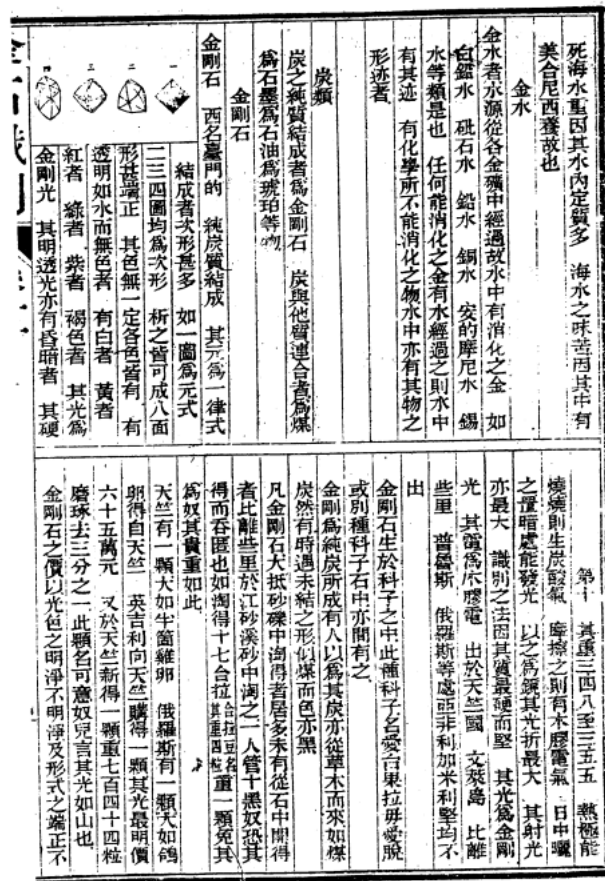 死海水重因其水內定質多 海水之味苦因其中有
美合尼西養故也
金水
金水者水源從各金礦中經過故水中有消化之金 如
水 砒石水 鉛水 水 安的摩尼水 錫
水等類是也 任何能消化之金有水經過之則水中
有其迹 有化學所不能消化之物水中亦有其物之
形迹者
炭類
炭之純質結成者爲金剛石 炭與他質連合者爲煤
爲石墨爲石油爲琥珀等物
金剛石
金剛石 西名臺門的 純炭質結成 其元爲一律式
結成者次形甚多 如一圖爲元式
二三四圖均爲次形 析之皆可成八面
形甚端正 其色無一定各色皆有 有
透明如水而無色者 有白者 黃者
紅者 綠者 紫者 褐色者 其光爲
金剛光 其明透光亦有昏暗者 其硬
一
二
三
四
第十 其重三四八至三五五 熱極能
燒燒則生炭酸氣 摩擦之則有木膠電氣 日中曬
之置暗處能發光 以之爲鏡其光折最大 其射光
亦最大 識別之法因其質最硬而堅 其光爲金剛
光 其電爲木膠電 出於天竺國 文萊島 比離
些里 普魯斯 俄羅斯等處亞非利加米利堅均不
出
金剛石生於科子之中此種科子名愛台果拉毋愛脫
或別種科子石中亦間有之
金剛爲純炭所成有人以爲其炭亦從草木而來如煤
炭然有時遇未結之形似煤而色亦黑
凡金剛石大抵砂礫中淘得者居多未有從石中開得
者比離些里於江砂溪砂中淘之一人管十黑奴恐其
得而吞匿也如淘得十七合拉合拉豆名其重四粒重一顆免其
爲奴其貴重如此
天竺有一顆大如半箇雞卵 俄羅斯有一顆大如鴿
卵得自天竺 英吉利向天竺購得一顆其光最明價
六十五萬元 又於天竺新得一顆重七百四十四粒
磨琢去三分之一此顆名可意奴兒言其光如山也
金剛石之價以光色之明淨不明淨及形式之端正不